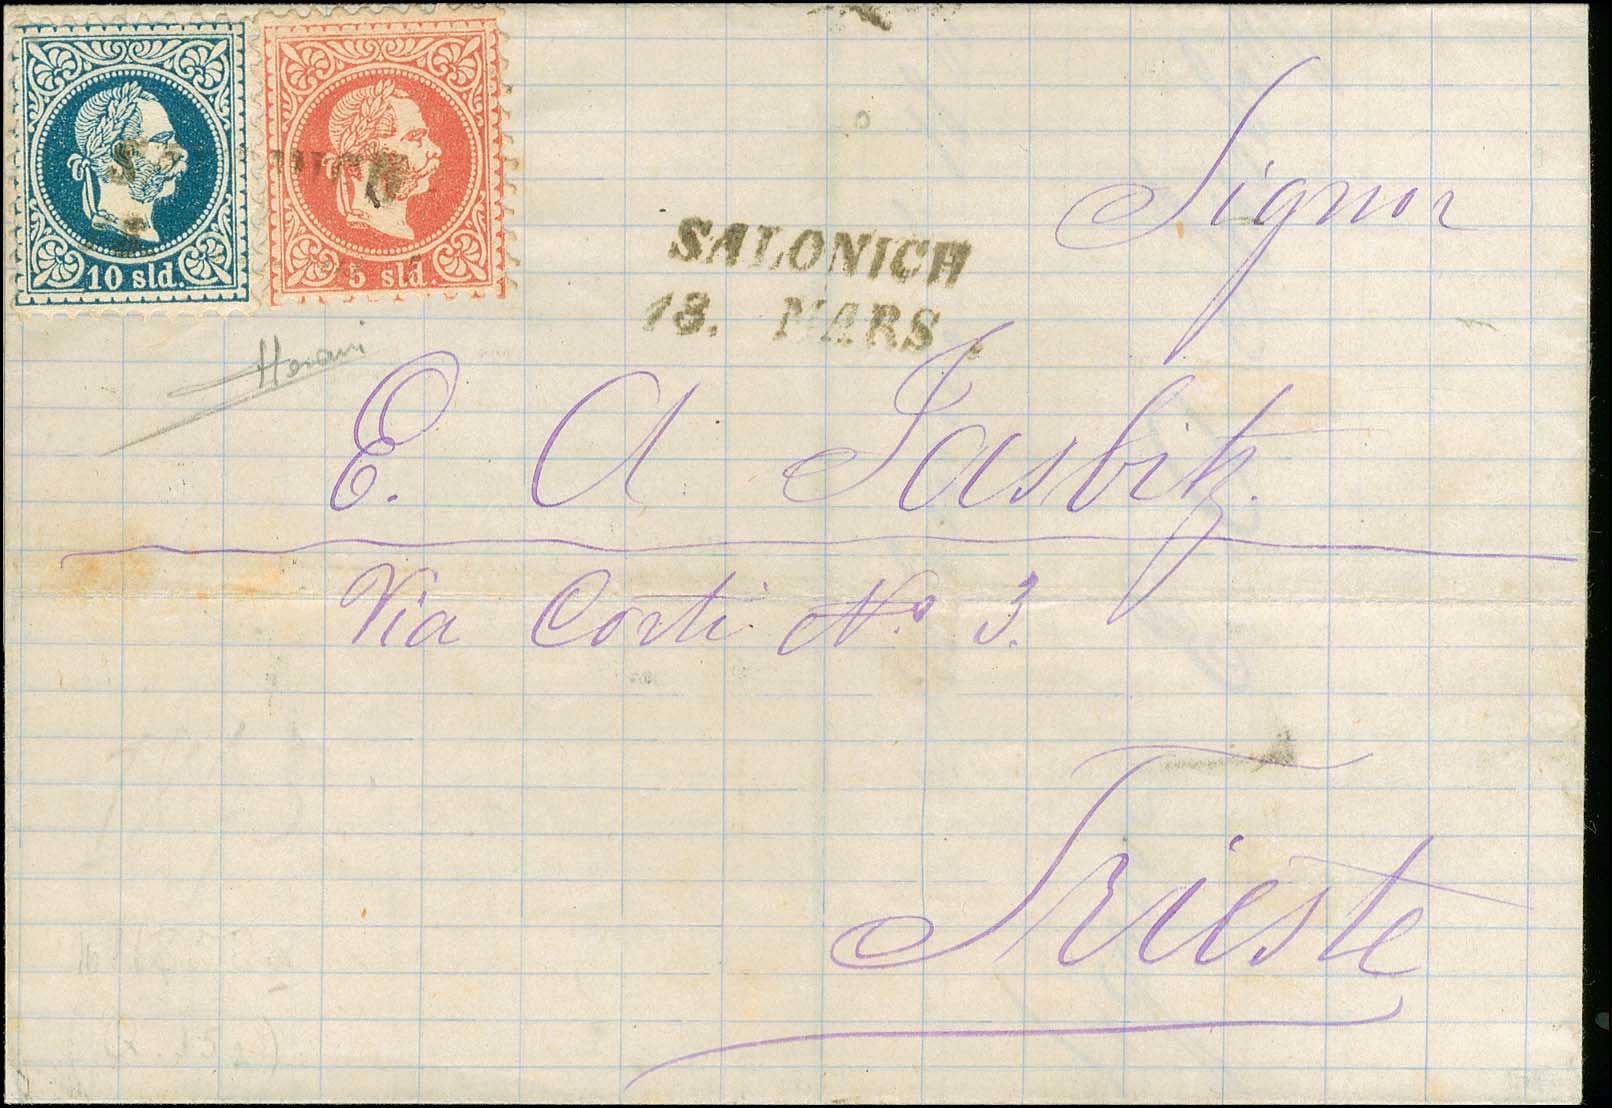 10 sld.
5 sld.
SALONICH
13. MARS.
Signor
E. A. Jasbitz.
Via Corti No. 3.
Trieste